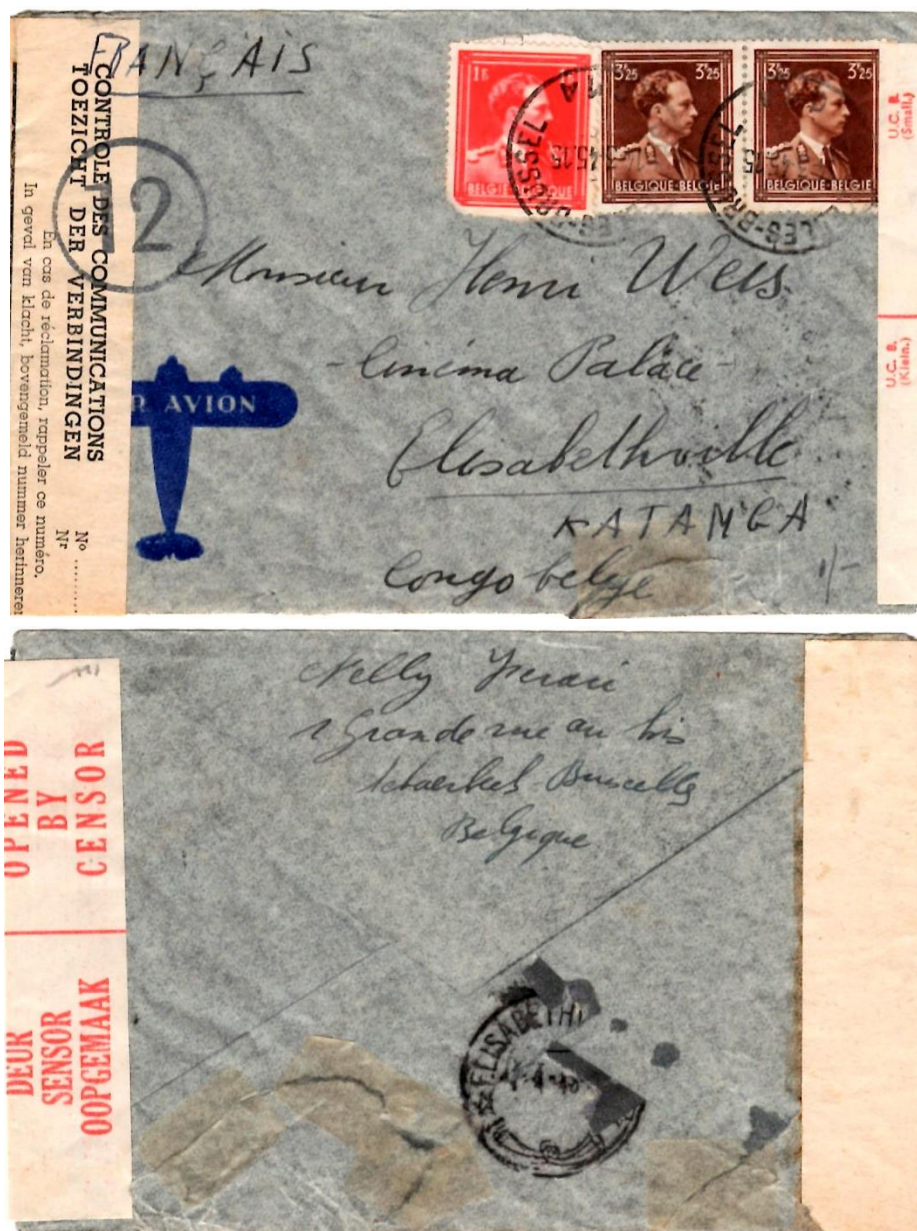 FRANÇAIS
CONTROLE DES COMMUNICATIONS
TOEZICHT DER VERBINDINGEN
En cas de réclamation, rappeler ce numéro.
In geval van klacht, bovengemeld nummer herinneren
Nº ..........
Nr
12
1F
BELGIQUE
3F25 3F25
BELGIQUE-BELGIE
3F25 3F25
BELGIQUE-BELGIE
BRUSSEL
U.C.B.
(Small.)
U.C.B.
(Klein.)
Monsieur Henri Weis
- Cinéma Palace -
Elisabethville
KATANGA
Congo belge
1/-
R AVION
Nelly
1 Grande rue au bois
Schaerbeek Bruxelles
Belgique
OPENED
BY
CENSOR
DEUR
SENSOR
OOPGEMAAK
ELISABETH